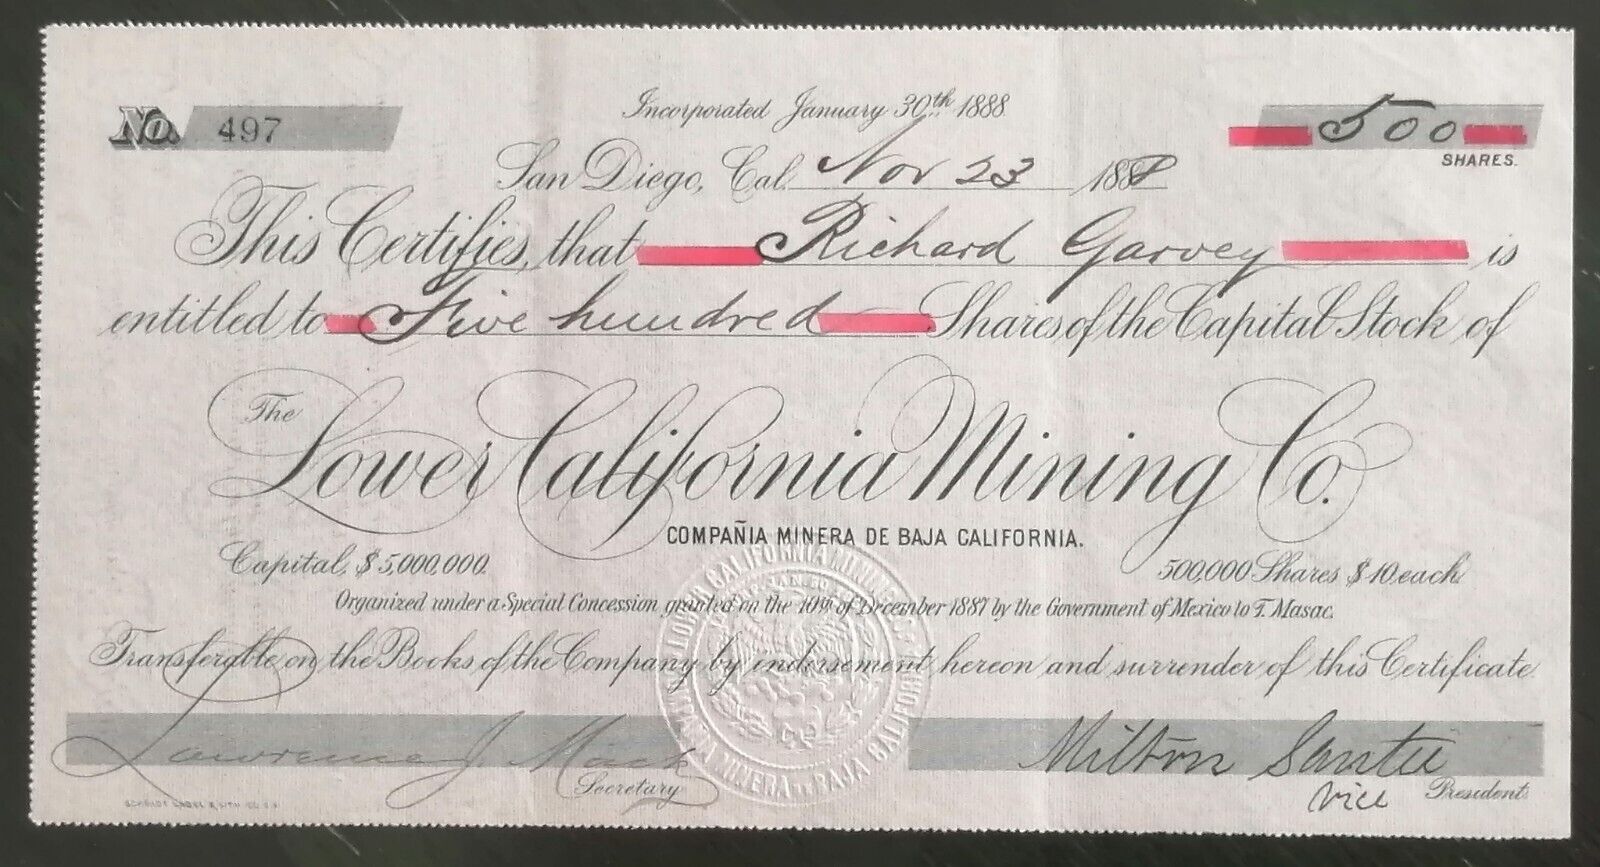 Incorporated January 30th 1888.
No. 497
500
SHARES.
San Diego, Cal. Nov 23 1888
This Certifies, that Richard Garvey is
entitled to Five hundred Shares of the Capital Stock of
The Lower California Mining Co.
COMPAÑIA MINERA DE BAJA CALIFORNIA.
Capital, $5,000,000. 500,000 Shares $10 each.
Organized under a Special Concession granted on the 10th of December 1887 by the Government of Mexico to T. Masac.
Transferable on the Books of the Company by endorsement hereon and surrender of this Certificate
LOWER CALIFORNIA MINING CO.
COMPAÑIA MINERA DE BAJA CALIFORNIA
Lawrence J. Mack Milton Santee
Secretary Vice President.